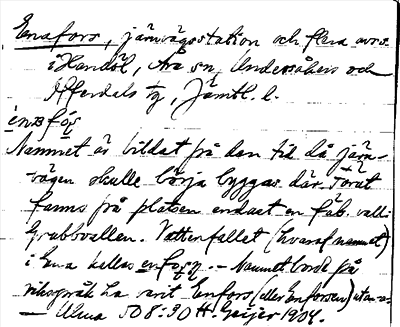 Enafors, järnvägsstation och flera avss.
i Handöl, Åre sn, Undersåkers och
Offerdals tg, Jämtl. l.
Namnet är bildat på den tid då järn-
vägen skulle börja byggas där. Förut
fanns på platsen endast en fäb. vall:
Grubbvallen. Vattenfallet (hvaraf namnet)
i Ena kallas – Namnet borde på
riksspråk ha varit Enfors (eller Enforsen) utan a
– Ulma 508:30 H. Geijer 1904.